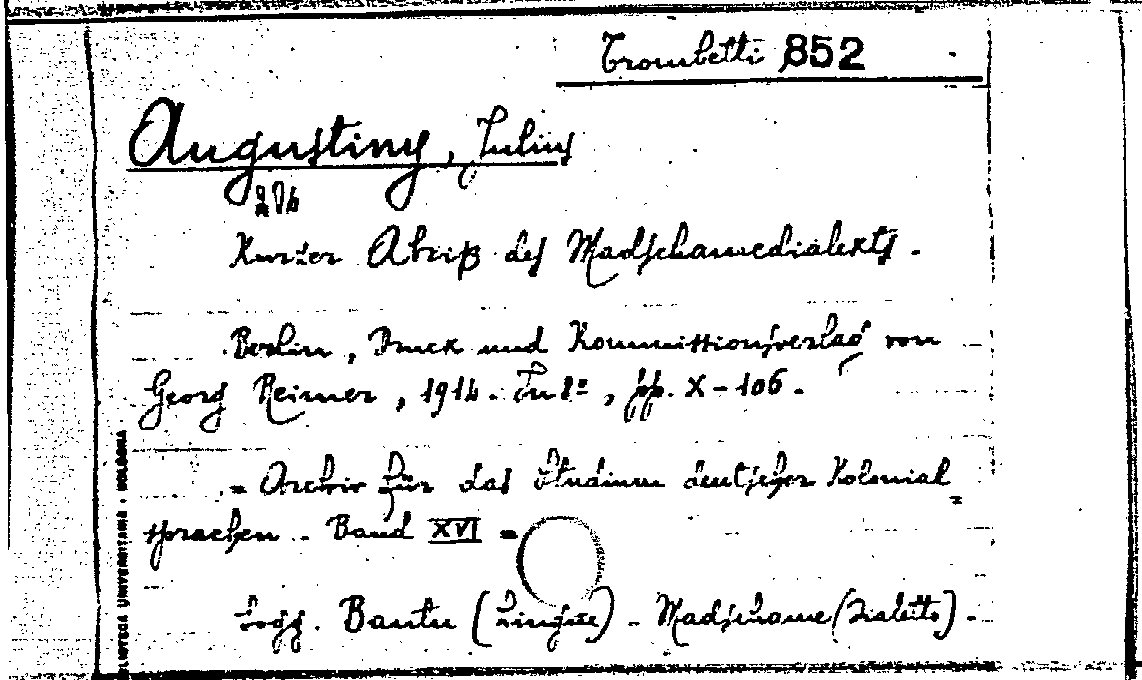 Trombetti 852
Augustiny, Julius
Kurzer Abriß des Madschamedialekts.
Berlin, Druck und Kommissionsverlag von
Georg Reimer, 1914. In 8º, pp. X-106.
= Archiv für das Studium deutscher Kolonial=
sprachen. Band XVI =
Sogg. Bantu (Lingue) - Madschame (Dialetto).
BIBLIOTECA UNIVERSITARIA · BOLOGNA